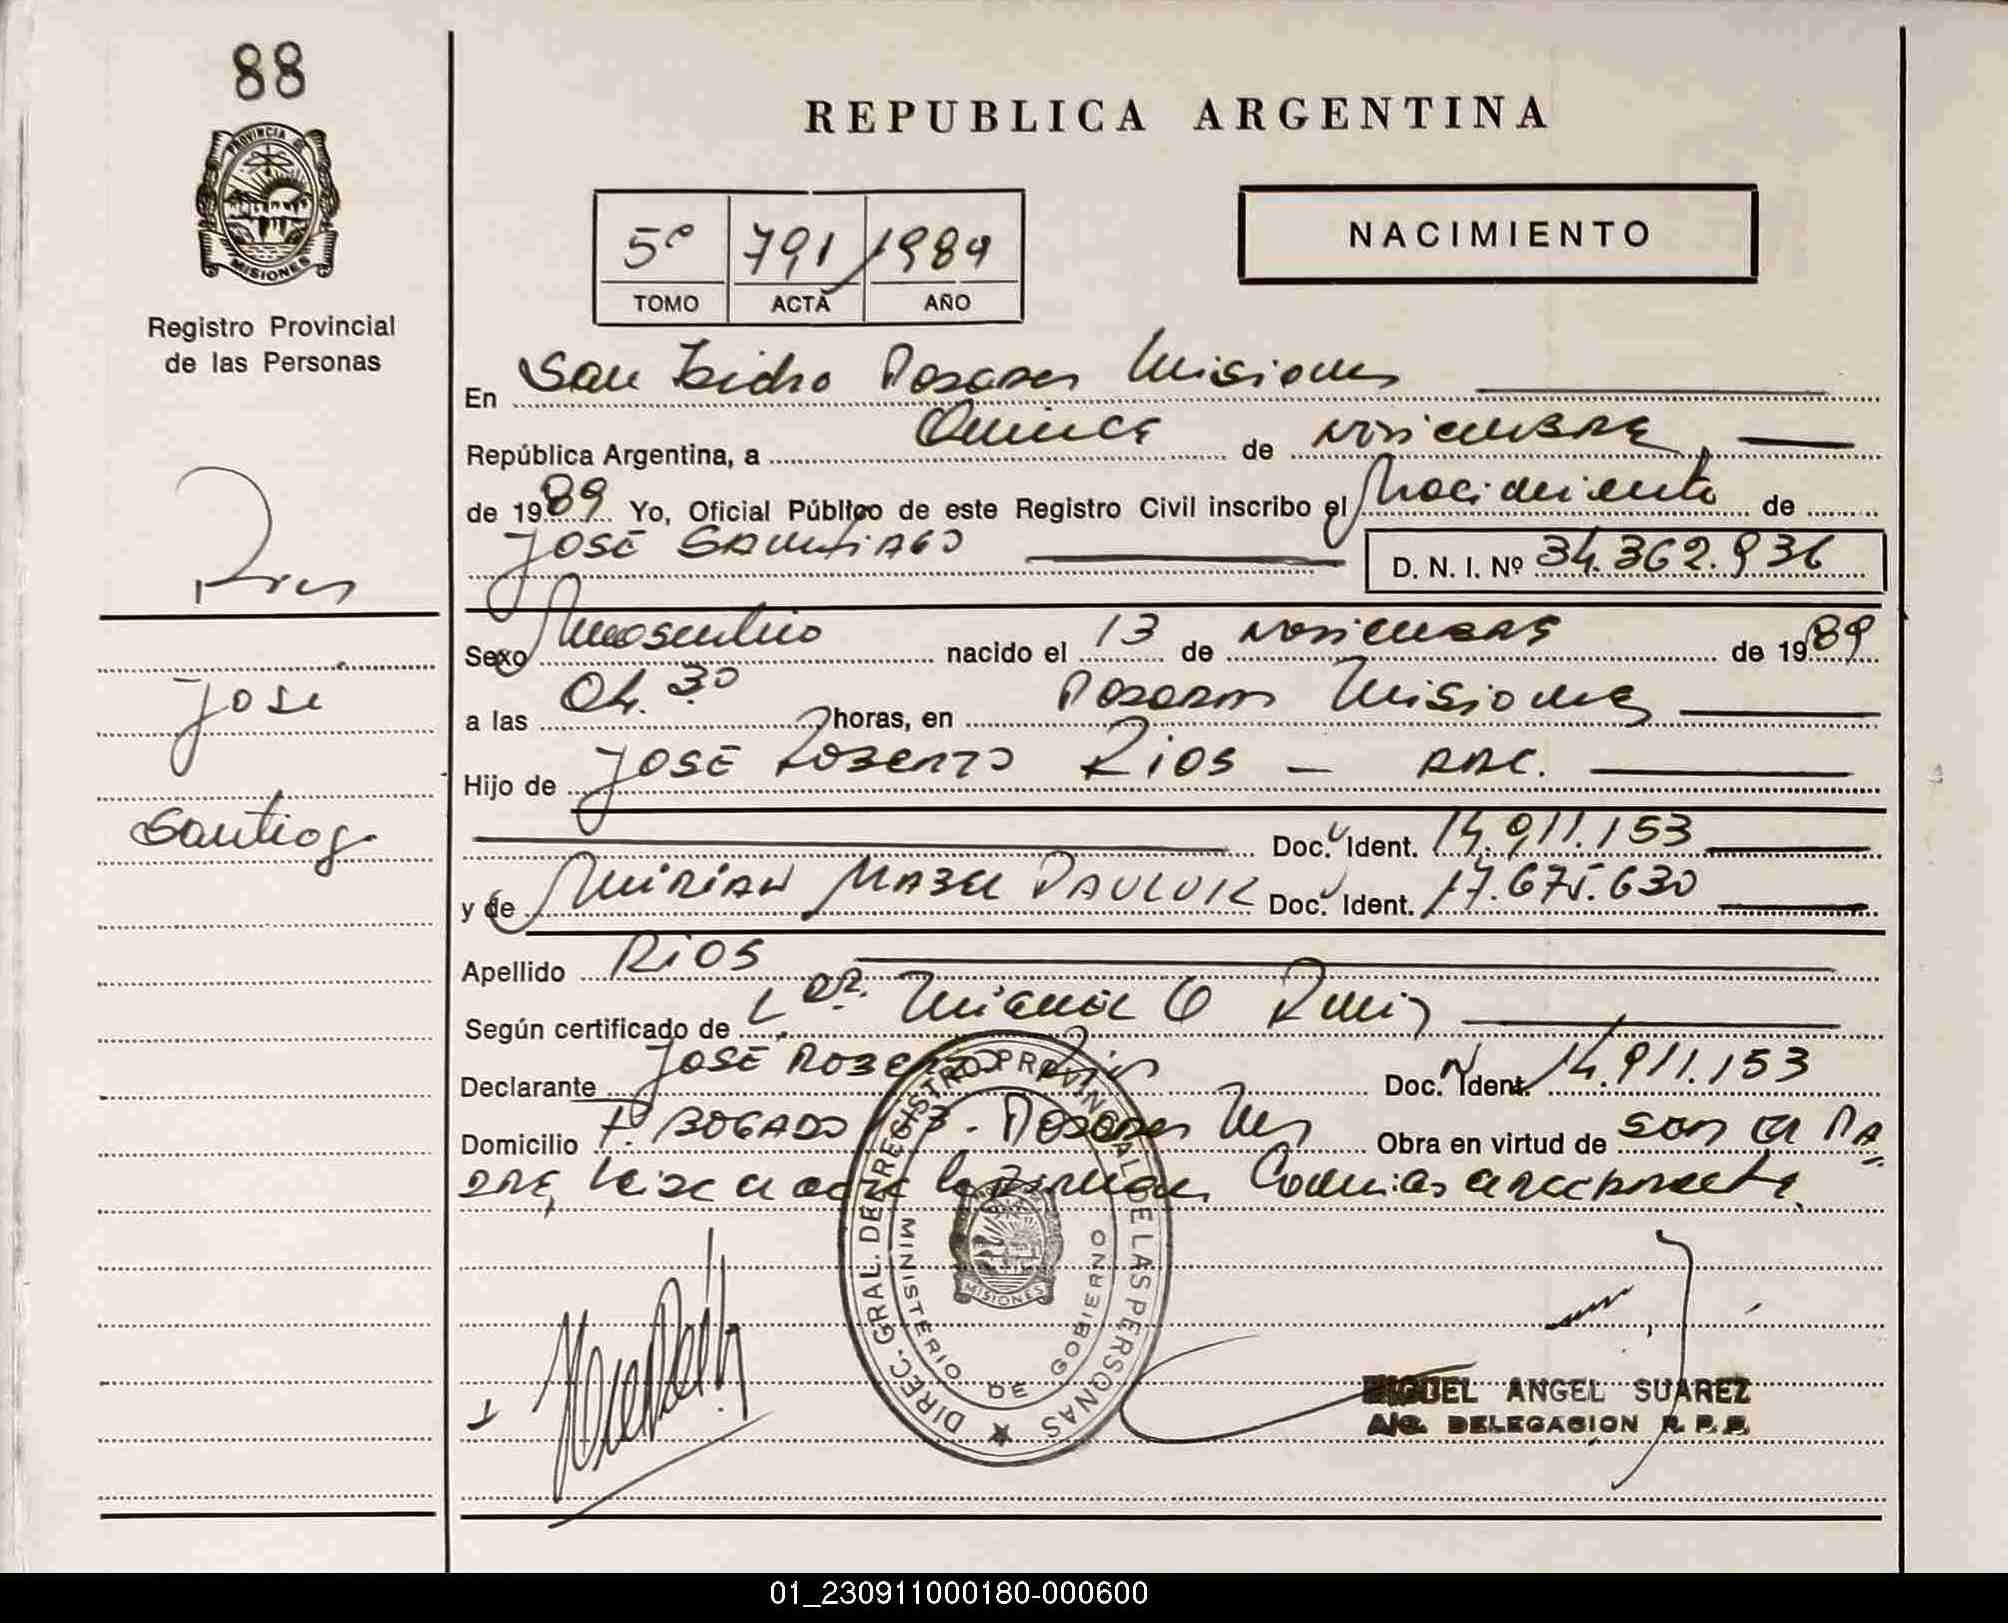 88
PROVINCIA DE
MISIONES
Registro Provincial
de las Personas
Rios
Jose
Santiago
REPUBLICA ARGENTINA
5º 791 1989
TOMO ACTA AÑO
NACIMIENTO
En San Isidro Posadas Misiones
República Argentina, a Quince de noviembre
de 1989 Yo, Oficial Público de este Registro Civil inscribo el Nacimiento de
JOSÉ SANTIAGO D. N. I. Nº 34.362.936
Sexo Masculino nacido el 13 de noviembre de 1989
a las 04.30 horas, en Posadas Misiones
Hijo de JOSÉ ROBERTO RIOS – ARG.
Doc. Ident. 14.911.153
y de MIRIAN MABEL PAULUK Doc. Ident. 17.675.630
Apellido RIOS
Según certificado de Miguel Ruiz
Declarante JOSÉ ROBERTO Rios Doc. Ident. 14.911.153
Domicilio P. BOGADO Posadas Mns Obra en virtud de ser el PA
DRE, Leida el acta la firman Conmigo el declarante
DIREC. GRAL. DE REGISTRO PROVINCIAL DE LAS PERSONAS
MINISTERIO DE GOBIERNO
MISIONES
MIGUEL ANGEL SUAREZ
A/C. DELEGACION R. P. P.
01_230911000180-000600